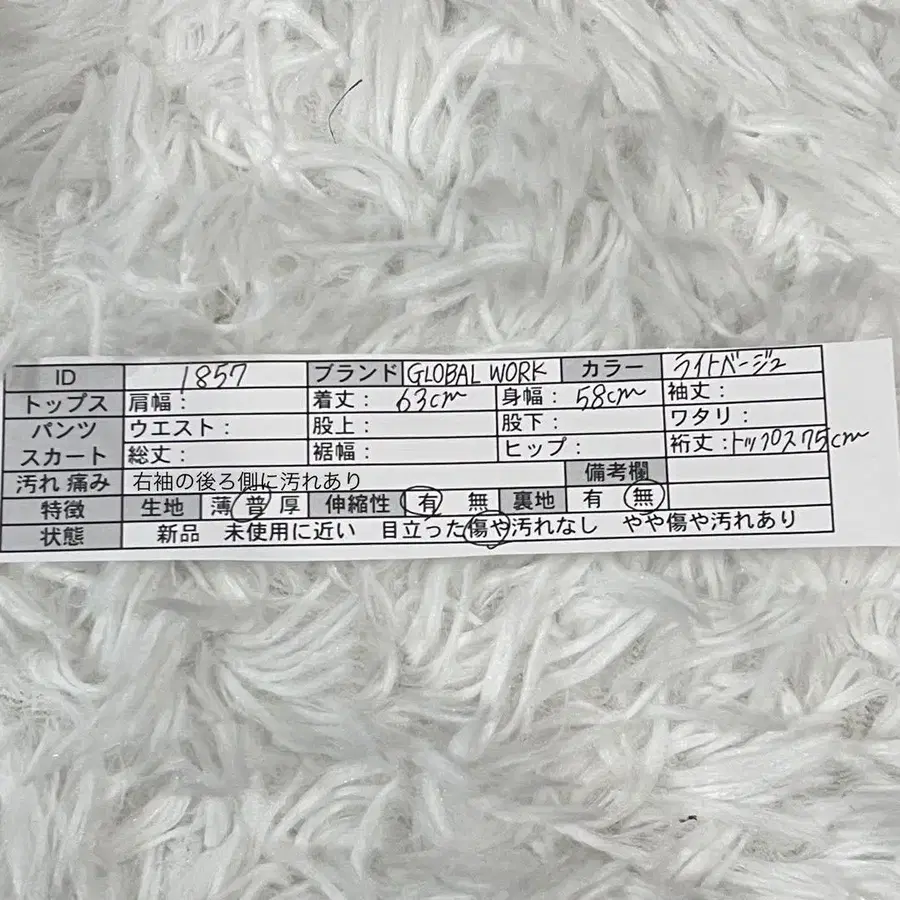 ID 1857 ブランド GLOBAL WORK カラー ライトベージュ
トップス 肩幅： 着丈： 63cm 身幅： 58cm 袖丈：
パンツ ウエスト： 股上： 股下： ワタリ：
スカート 総丈： 裾幅： ヒップ： 裄丈：トップス75cm
汚れ 痛み 右袖の後ろ側に汚れあり 備考欄
特徴 生地 薄 普 厚 伸縮性 有 無 裏地 有 無
状態 新品 未使用に近い 目立った傷や汚れなし やや傷や汚れあり